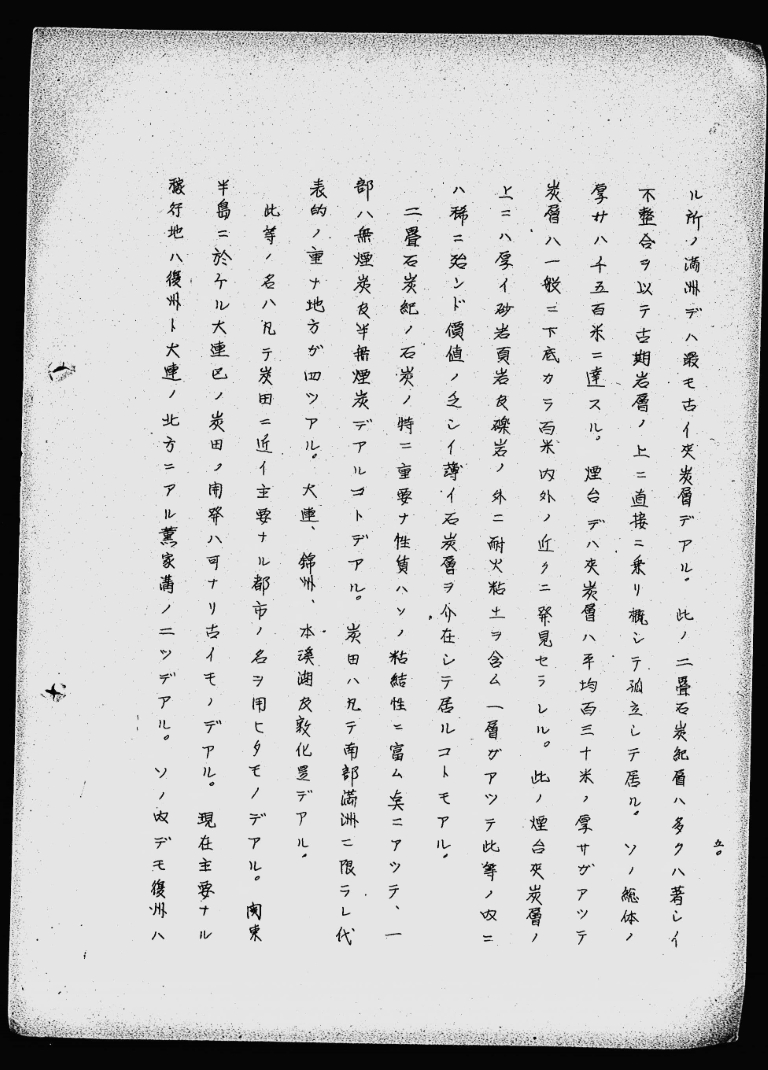 五〇
ル所ノ満洲デハ最モ古イ夾炭層デアル。此ノ二畳石炭紀層ハ多クハ著シイ
不整合ヲ以テ古期岩層ノ上ニ直接ニ乗リ概シテ孤立シテ居ル。ソノ総体ノ
厚サハ千五百米ニ達スル。煙台デハ夾炭層ハ平均百三十米ノ厚サガアツテ
炭層ハ一般ニ下底カラ百米内外ノ近クニ発見セラレル。此ノ煙台夾炭層ノ
上ニハ厚イ砂岩頁岩及礫岩ノ外ニ耐火粘土ヲ含ム一層ガアツテ此等ノ内ニ
ハ稀ニ殆ンド價値ノ乏シイ薄イ石炭層ヲ介在シテ居ルコトモアル。
二畳石炭紀ノ石炭ノ特ニ重要ナ性質ハソノ粘結性ニ富ム点ニアツテ、一
部ハ無煙炭及半無煙炭デアルコトデアル。炭田ハ凡テ南部満洲ニ限ラレ代
表的ノ重ナ地方ガ四ツアル。大連、錦州、本溪湖及敦化是デアル。
此等ノ名ハ凡テ炭田ニ近イ主要ナル都市ノ名ヲ用ヒタモノデアル。関東
半島ニ於ケル大連区ノ炭田ノ開発ハ可ナリ古イモノデアル。現在主要ナル
稼行地ハ復州ト大連ノ北方ニアル薫家溝ノ二ツデアル。ソノ内デモ復州ハ